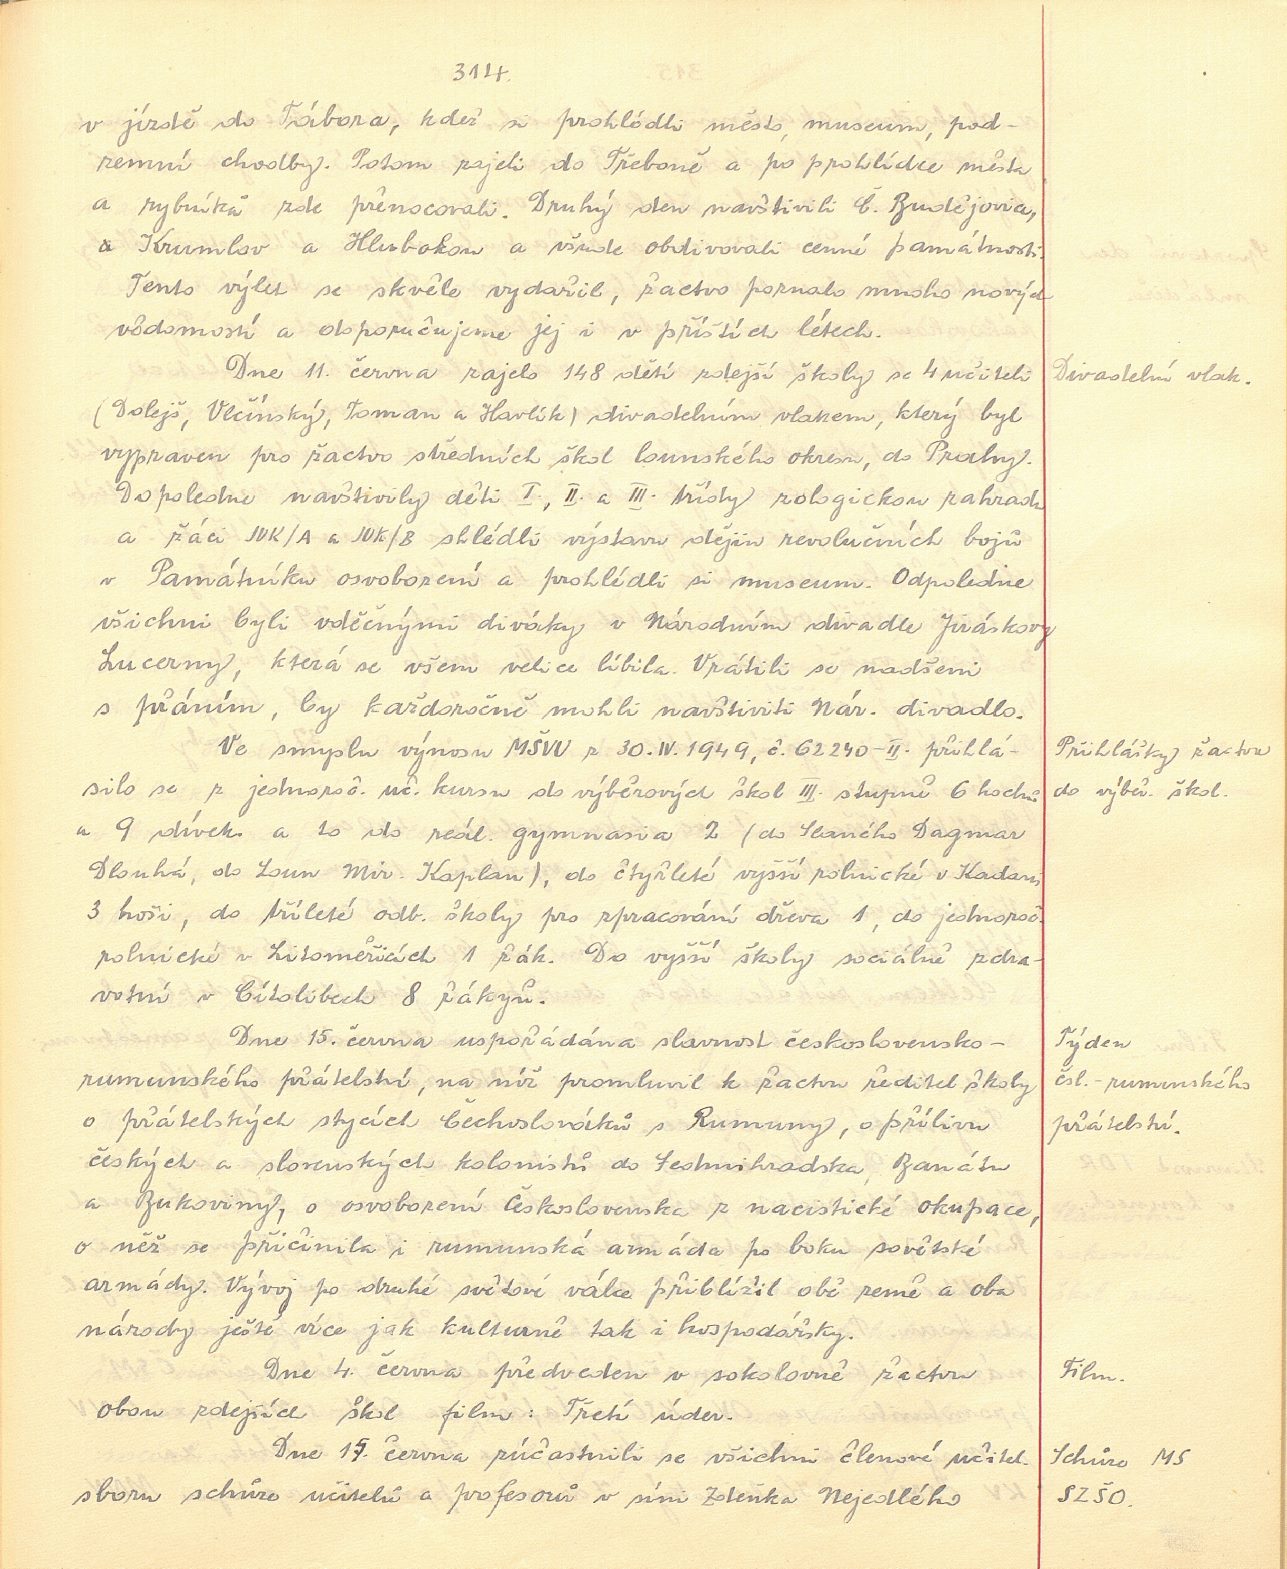 314.
v jízdě do Tábora, kdež si prohlédli město, museum, pod-
zemní chodby. Potom zajeli do Třeboně a po prohlídce města
a rybníků zde přenocovali. Druhý den navštívili Č. Budějovice,
a Krumlov a Hlubokou a všude obdivovali cenné památnosti.
Tento výlet se skvěle vydařil, žactvo poznalo mnoho nových
vědomostí a doporučujeme jej i v příštích létech.
Dne 11. června zajelo 148 dětí zdejší školy se 4 učiteli
Divadelní vlak.
(Dolejš, Vlčinský, Toman a Havlík) divadelním vlakem, který byl
vypraven pro žactvo středních škol lounského okresu, do Prahy.
Dopoledne navštívily děti I., II. a III. třídy zologickou zahradu
a žáci JUK/A a JUK/B shlédli výstavu dějin revolučních bojů
v Památníku osvobození a prohlédli si museum. Odpoledne
všichni byli vděčnými diváky v Národním divadle Jiráskovy
Lucerny, která se všem velice líbila. Vrátili se nadšeni
s přáním, by každoročně mohli navštíviti Nár. divadlo.
Ve smyslu výnosu MŠVU z 30. IV. 1949, č. 62240-II. přihlá-
Přihlášky žactva
silo se z jednoroč. uč. kursu do výběrových škol III. stupně 6 hochů
do výběr. škol.
a 9 dívek a to do reál. gymnasia 2 (do Slaného Dagmar
Dlouhá, do Loun Mir. Kaplan), do čtyřleté vyšší rolnické v Kadani
3 hoši, do tříleté odb. školy pro zpracování dřeva 1, do jednoroč.
rolnické v Litoměřicích 1 žák. Do vyšší školy sociálně zdra-
votní v Cítolibech 8 žákyň.
Dne 15. června uspořádána slavnost československo-
Týden
rumunského přátelství, na níž promluvil k žactvu ředitel školy
čsl.-rumunského
o přátelských stycích Čechoslováků s Rumuny, o přílivu
přátelství.
českých a slovenských kolonistů do Sedmihradska, Banátu
a Bukoviny, o osvobození Československa z nacistické okupace,
o něž se přičinila i rumunská armáda po boku sovětské
armády. Vývoj po druhé světové válce přiblížil obě země a oba
národy ještě více jak kulturně tak i hospodářsky.
Dne 4. června předveden v sokolovně žactvu
Film.
obou zdejších škol film: Třetí úder.
Dne 17. června zúčastnili se všichni členové učitel.
Schůze MS
sboru schůze učitelů a profesorů v síni Zdeňka Nejedlého
SZŠO.